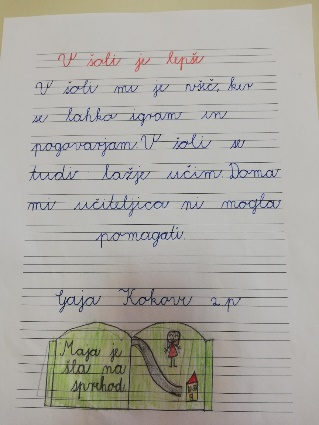 V šoli je lepše
V šoli mi je všeč, ker
se lahko igram in
pogovarjam. V šoli se
tudi lažje učim. Doma
mi učiteljica ni mogla
pomagati.
Gaja 2. p
Maja je
šla na
sprehod